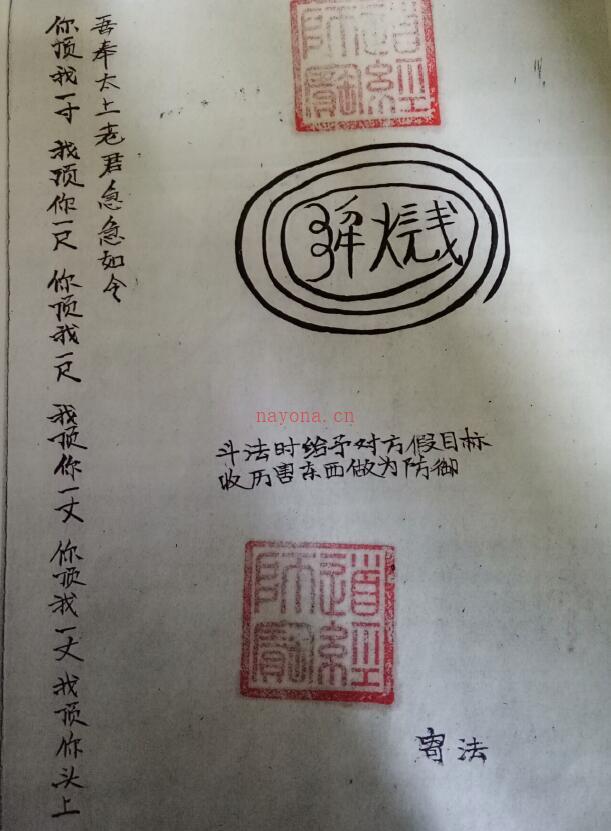 你顶我一寸 我顶你一尺 你顶我一尺 我顶你一丈 你顶我一丈 我顶你头上
吾奉太上老君急急如令
道經
師寶
nayona.cn
斗法时给予对方假目标
收历害东西做为防御
道經
師寶
寄法